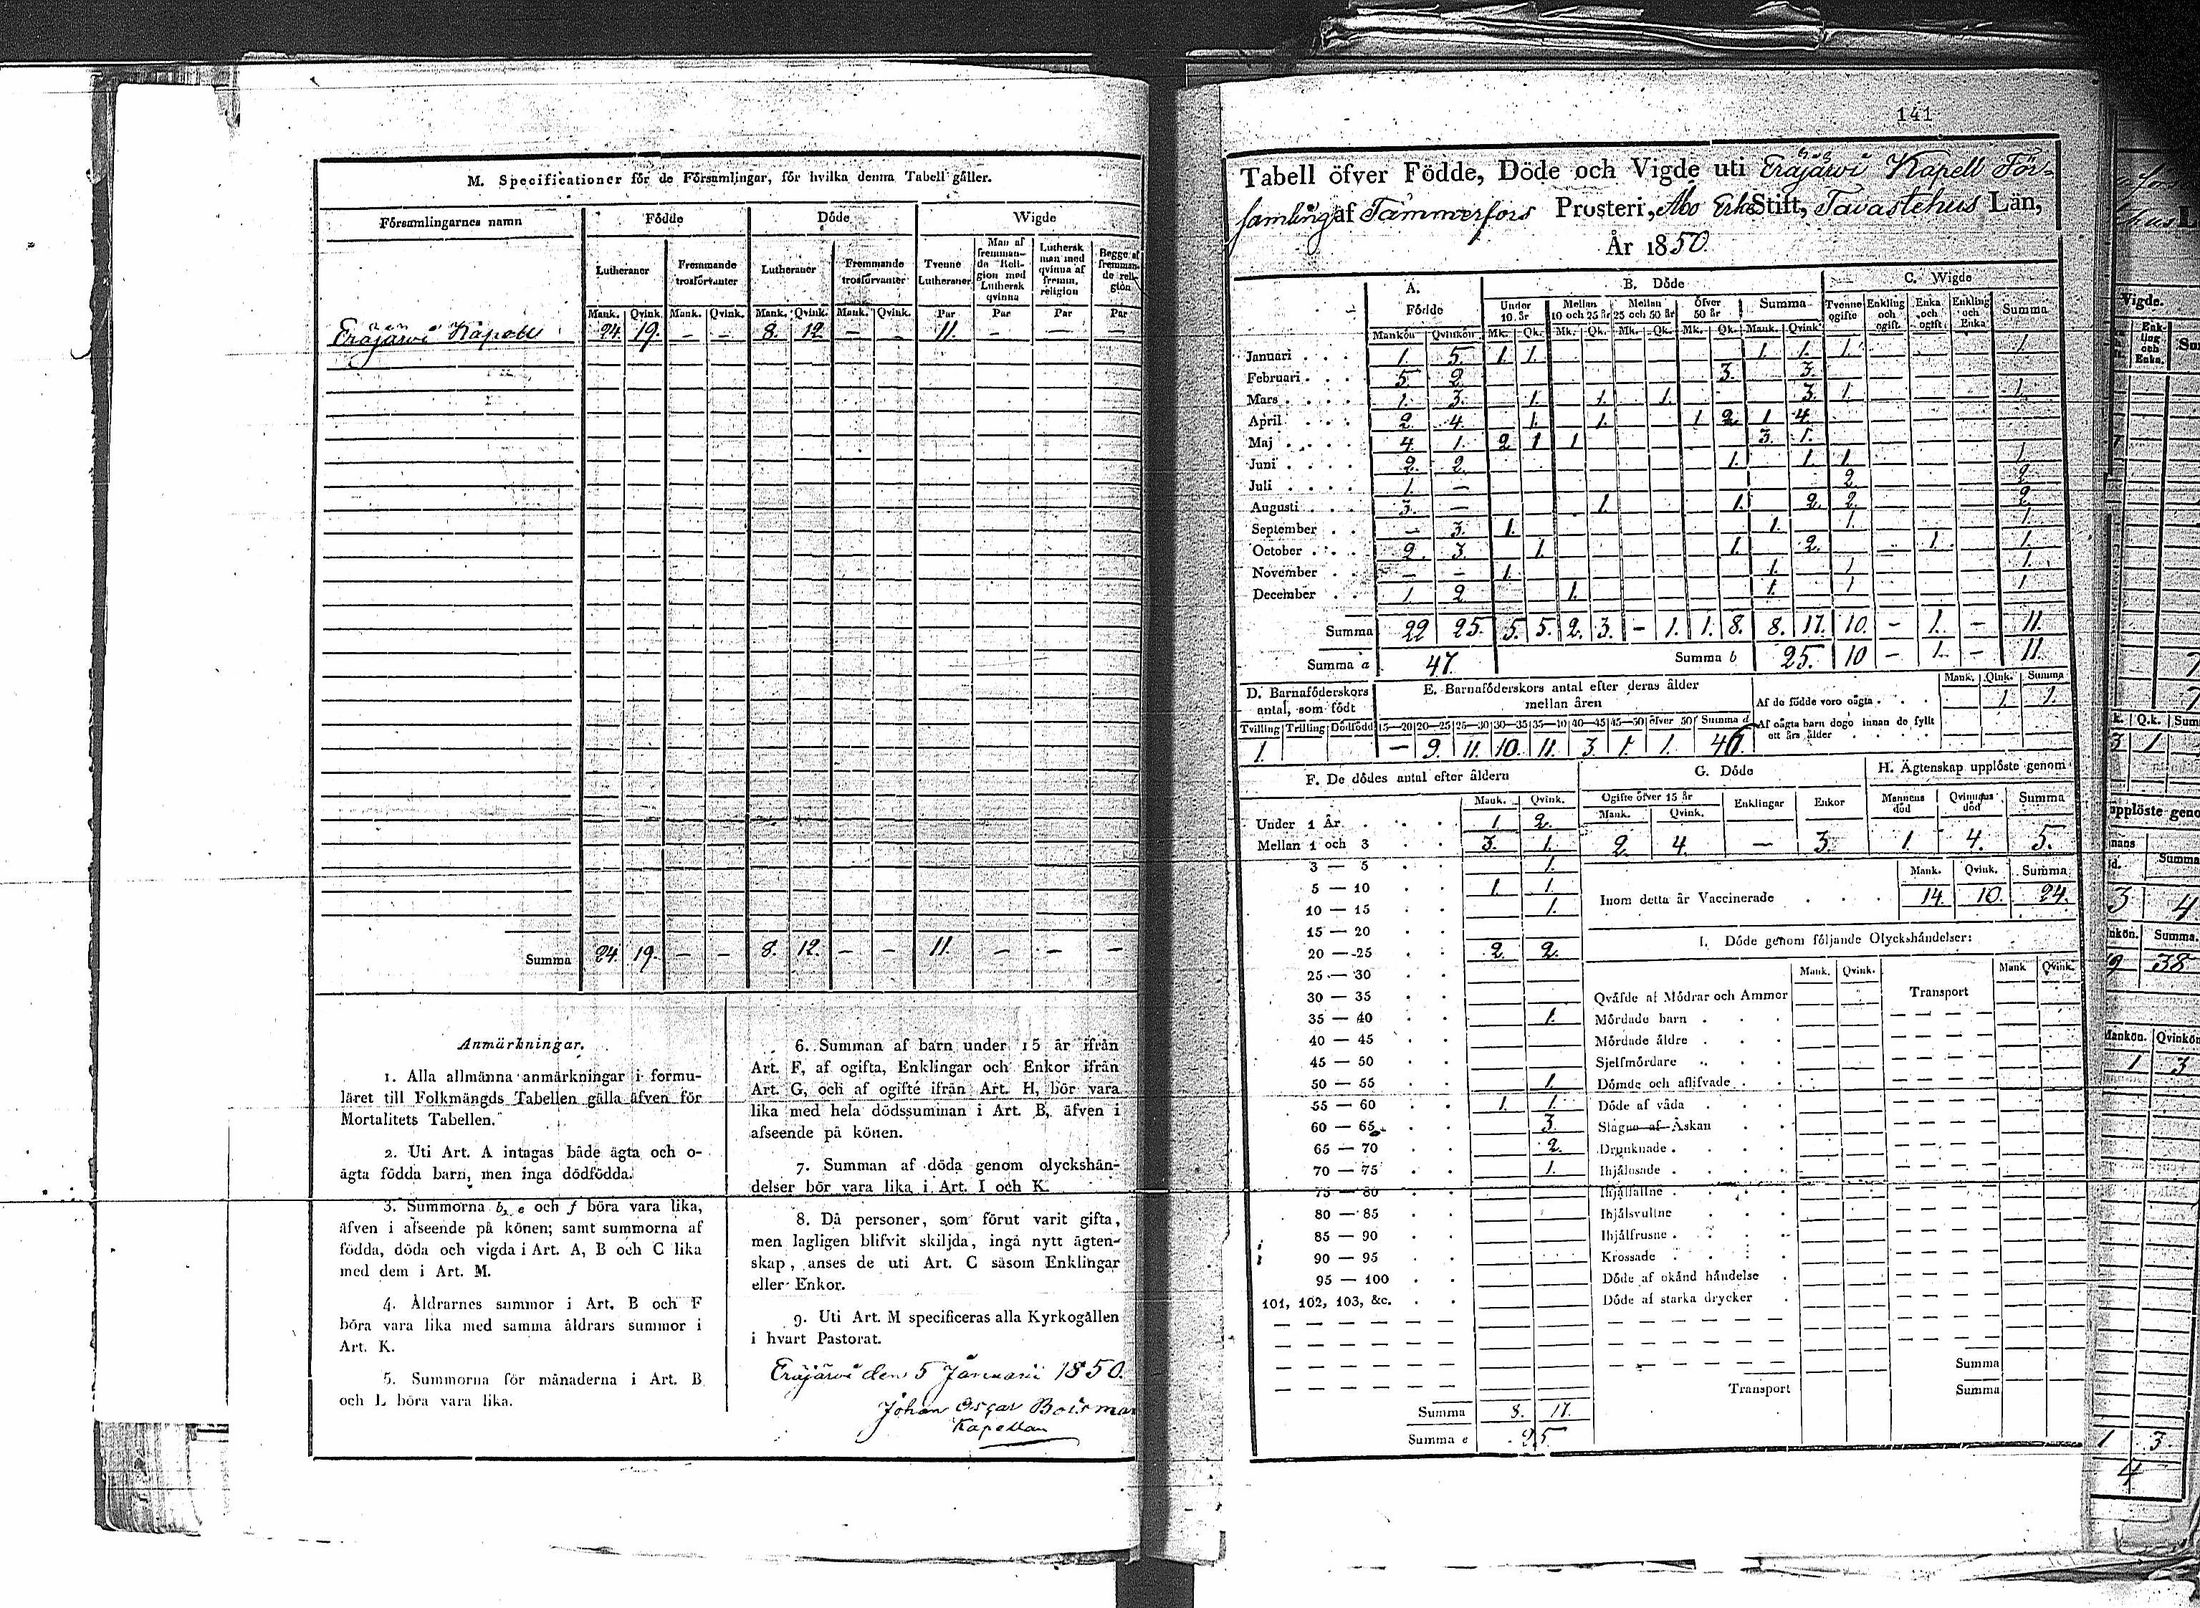 M. Specificationer för de Församlingar, för hvilka denna Tabell gäller.
Församlingarnes namn
Födde
Döde
Wigde
Lutheraner
Fremmande trosförvanter
Lutheraner
Fremmande trosförvanter
Tvenne Lutheraner
Man af fremmande Religion med Luthersk qvinna
Luthersk man med qvinna af fremm. religion
Begge af fremmande religion
Mank. Qvink. Mank. Qvink. Mank. Qvink. Mank. Qvink. Par Par Par Par
Eräjärvi Kapell 24. 19. — — 8. 12. — — 11. — — —
Summa 24. 19. — — 8. 12. — — 11. — — —
Anmärkningar.
1. Alla allmänna anmärkningar i formu-
läret till Folkmängds Tabellen gälla äfven för
Mortalitets Tabellen.
2. Uti Art. A intagas både ägta och o-
ägta födda barn, men inga dödfödda.
3. Summorna b, e och f böra vara lika,
äfven i afseende på könen; samt summorna af
födda, döda och vigda i Art. A, B och C lika
med dem i Art. M.
4. Åldrarnes summor i Art. B och F
böra vara lika med samma åldrars summor i
Art. K.
5. Summorna för månaderna i Art. B
och L böra vara lika.
6. Summan af barn under 15 år ifrån
Art. F, af ogifta, Enklingar och Enkor ifrån
Art. G, och af ogifte ifrån Art. H, bör vara
lika med hela dödssumman i Art. B, äfven i
afseende på könen.
7. Summan af döda genom olyckshän-
delser bör vara lika i Art. I och K.
8. Då personer, som förut varit gifta,
men lagligen blifvit skiljda, ingå nytt ägten-
skap, anses de uti Art. C såsom Enklingar
eller Enkor.
9. Uti Art. M specificeras alla Kyrkogällen
i hvart Pastorat.
Eräjärvi den 5 Januari 1850.
Johan Oscar Boisman
Kapellan
141
Tabell öfver Födde, Döde och Vigde uti Eräjärvi Kapell För-
samling af Tammerfors Prosteri, Åbo Erke Stift, Tavastehus Län,
År 1850.
A. Födde
B. Döde
C. Wigde
Under 10 år
Mellan 10 och 25 år
Mellan 25 och 50 år
Öfver 50 år
Summa
Tvenne ogifte
Enkling och ogift
Enka och ogift
Enkling och Enka
Summa
Mankön Qvinkön Mk. Qk. Mk. Qk. Mk. Qk. Mk. Qk. Mank. Qvink.
Januari 1. 5. 1. 1. 1. 1. 1. 1.
Februari 5. 2. 3. 3.
Mars 1. 3. 1. 1. 1. 3. 1. 1.
April 2. 4. 1. 1. 1 2. 1 4.
Maj 4. 1. 2 1 1 3. 1.
Juni 2. 2. 1. 1. 1. 1
Juli 1. — 2 2
Augusti 3. — 1. 1. 2. 2. 2.
September — 3. 1. 1. 1. 1.
October 2. 3. 1. 1. 2. 1. 1.
November — — 1. 1. 1 1.
December 1. 2. 1. 1. 1 1
Summa 22 25. 5. 5. 2. 3. — 1. 1. 8. 8. 17. 10. — 1. — 11.
Summa a 47. Summa b 25. 10 — 1. — 11.
D. Barnaföderskors antal, som födt
Tvilling Trilling Dödfödd
1.
E. Barnaföderskors antal efter deras ålder
mellan åren
15—20 20—25 25—30 30—35 35—40 40—45 45—50 öfver 50 Summa d
— 9. 11. 10. 11. 3. 1. 1. 46.
Mank. Qink. Summa
Af de födde voro oägta . . . 1. 1.
Af oägta barn dogo innan de fyllt
ett års ålder . . . .
F. De dödes antal efter åldern
Mank. Qvink.
Under 1 År 1 2.
Mellan 1 och 3 3. 1.
3 — 5 1.
5 — 10 1. 1.
10 — 15 1.
15 — 20
20 — 25 2. 2.
25 — 30
30 — 35
35 — 40 1.
40 — 45
45 — 50
50 — 55 1.
55 — 60 1. 1.
60 — 65 3.
65 — 70 2.
70 — 75 1.
75 — 80
80 — 85
85 — 90
90 — 95
95 — 100
101, 102, 103, &c.
Summa 8. 17.
Summa e 25.
G. Döde
Ogifte öfver 15 år
Enklingar
Enkor
Mank. Qvink.
2. 4. — 3.
H. Ägtenskap upplöste genom
Mannens död
Qvinnans död
Summa
1 4. 5.
Mank. Qvink. Summa
Inom detta år Vaccinerade . . . 14. 10. 24.
I. Döde genom följande Olyckshändelser:
Mank. Qvink. Mank Qvink.
Qväfde af Mödrar och Ammor
Transport
Mördade barn
Mördade äldre
Sjelfmördare
Dömde och aflifvade
Döde af våda
Slagne af Åskan
Drunknade
Ihjälosade
Ihjälfallne
Ihjälsvultne
Ihjälfrusne
Krossade
Döde af okänd händelse
Döde af starka drycker
Summa
Transport Summa